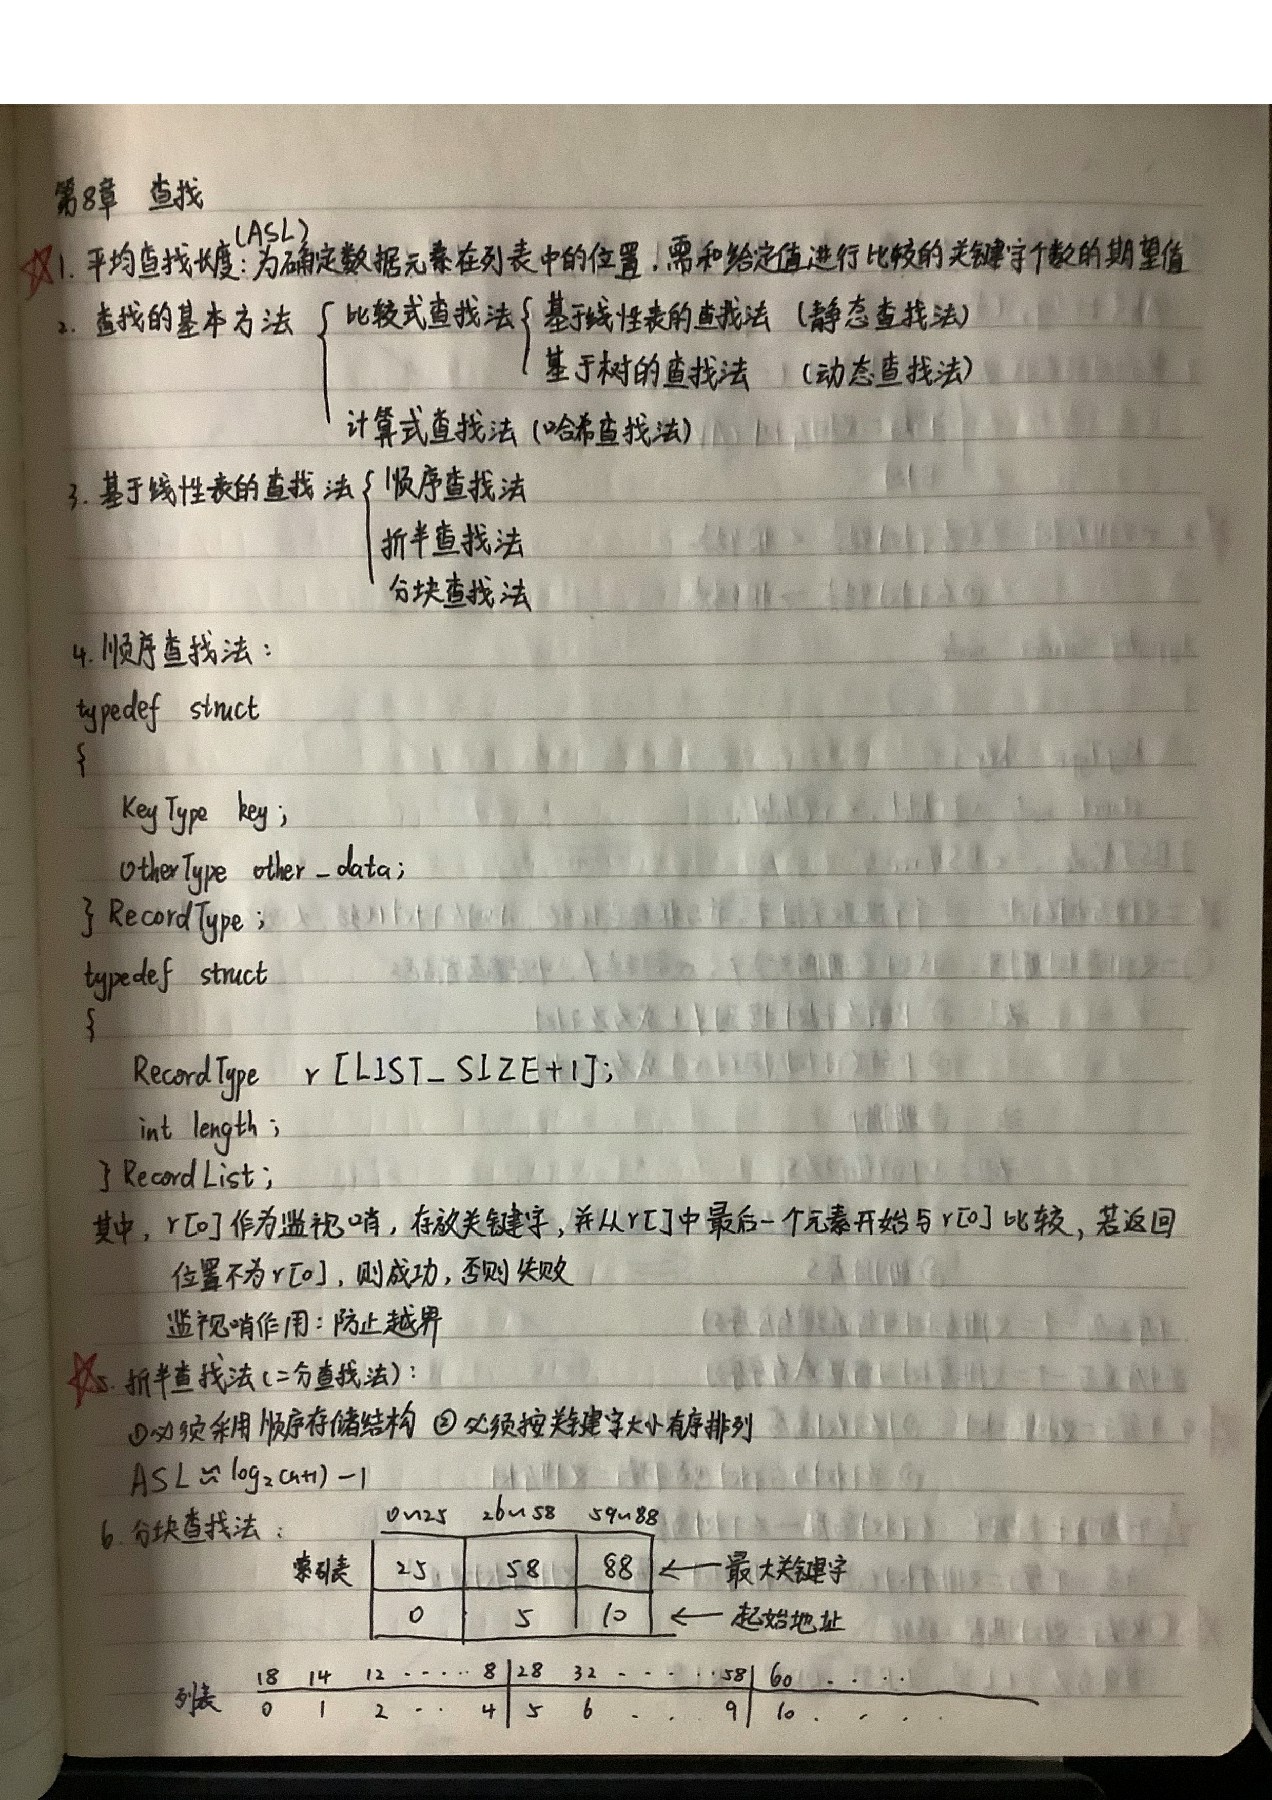 第8章 查找
(ASL)
1. 平均查找长度：为确定数据元素在列表中的位置，需和给定值进行比较的关键字个数的期望值
2. 查找的基本方法 { 比较式查找法 { 基于线性表的查找法 (静态查找法)
基于树的查找法 (动态查找法)
计算式查找法 (哈希查找法)
3. 基于线性表的查找法 { 顺序查找法
折半查找法
分块查找法
4. 顺序查找法：
typedef struct
{
KeyType key;
OtherType other_data;
} RecordType;
typedef struct
{
RecordType r[LIST_SIZE+1];
int length;
} RecordList;
其中，r[0]作为监视哨，存放关键字，并从r[]中最后一个元素开始与r[0]比较，若返回
位置不为r[0]，则成功，否则失败
监视哨作用：防止越界
5. 折半查找法(二分查找法)：
①必须采用顺序存储结构 ②必须按关键字大小有序排列
ASL≈log₂(n+1)-1
6. 分块查找法：
0~25 26~58 59~88
索引表 25 58 88 ← 最大关键字
0 5 10 ← 起始地址
18 14 12 ····· 8 28 32 ······ 58 60 ····
列表 0 1 2 ·· 4 5 6 ··· 9 10 ····